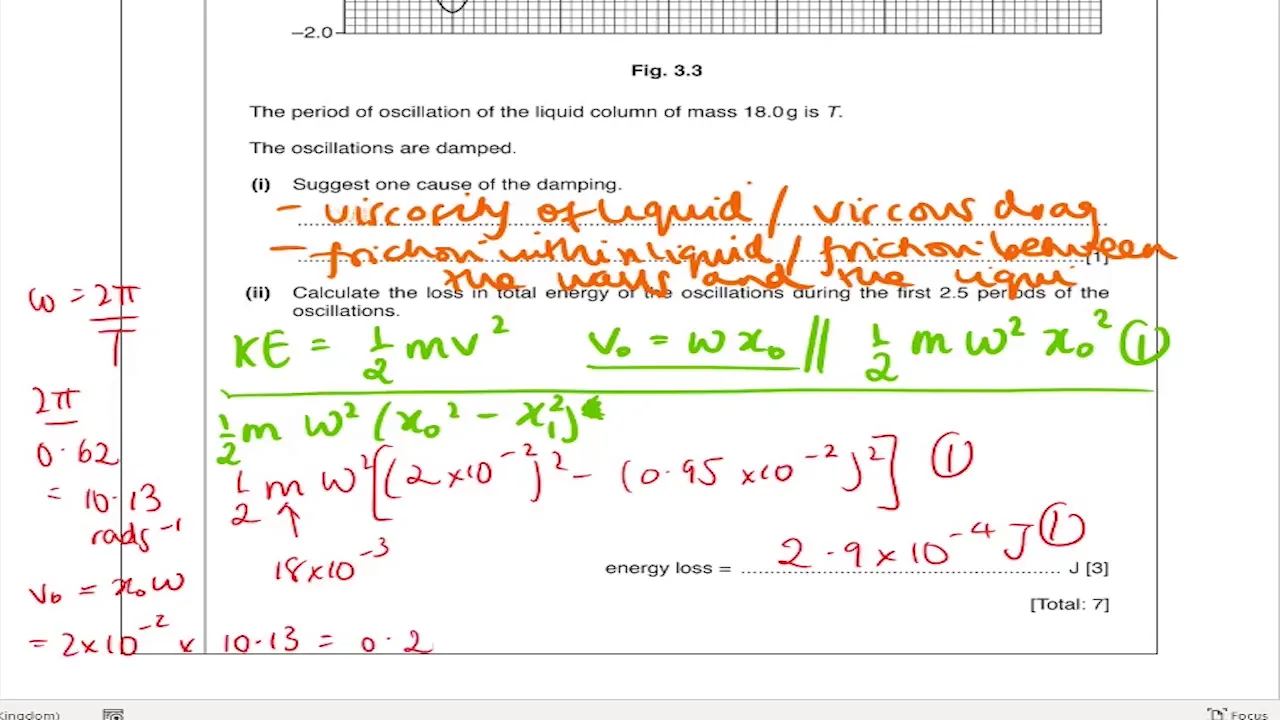 −2.0
Fig. 3.3
The period of oscillation of the liquid column of mass 18.0 g is T.
The oscillations are damped.
(i) Suggest one cause of the damping.
- viscosity of liquid / viscous drag
- friction within liquid / friction between
[1]
the walls and the liqui
(ii) Calculate the loss in total energy of the oscillations during the first 2.5 periods of the
oscillations.
KE = 1/2 mv² v₀ = ωx₀ // 1/2 m ω² x₀² ①
1/2 m ω² (x₀² - x₁²)
1/2 m ω² [(2×10⁻²)² - (0.95 ×10⁻²)²] ①
18×10⁻³
2.9×10⁻⁴ J ①
energy loss = ................ J [3]
[Total: 7]
ω = 2π/T
2π
0.62
= 10.13
rads⁻¹
v₀ = x₀ω
= 2×10⁻² × 10.13 = 0.2
Kingdom)
Focus